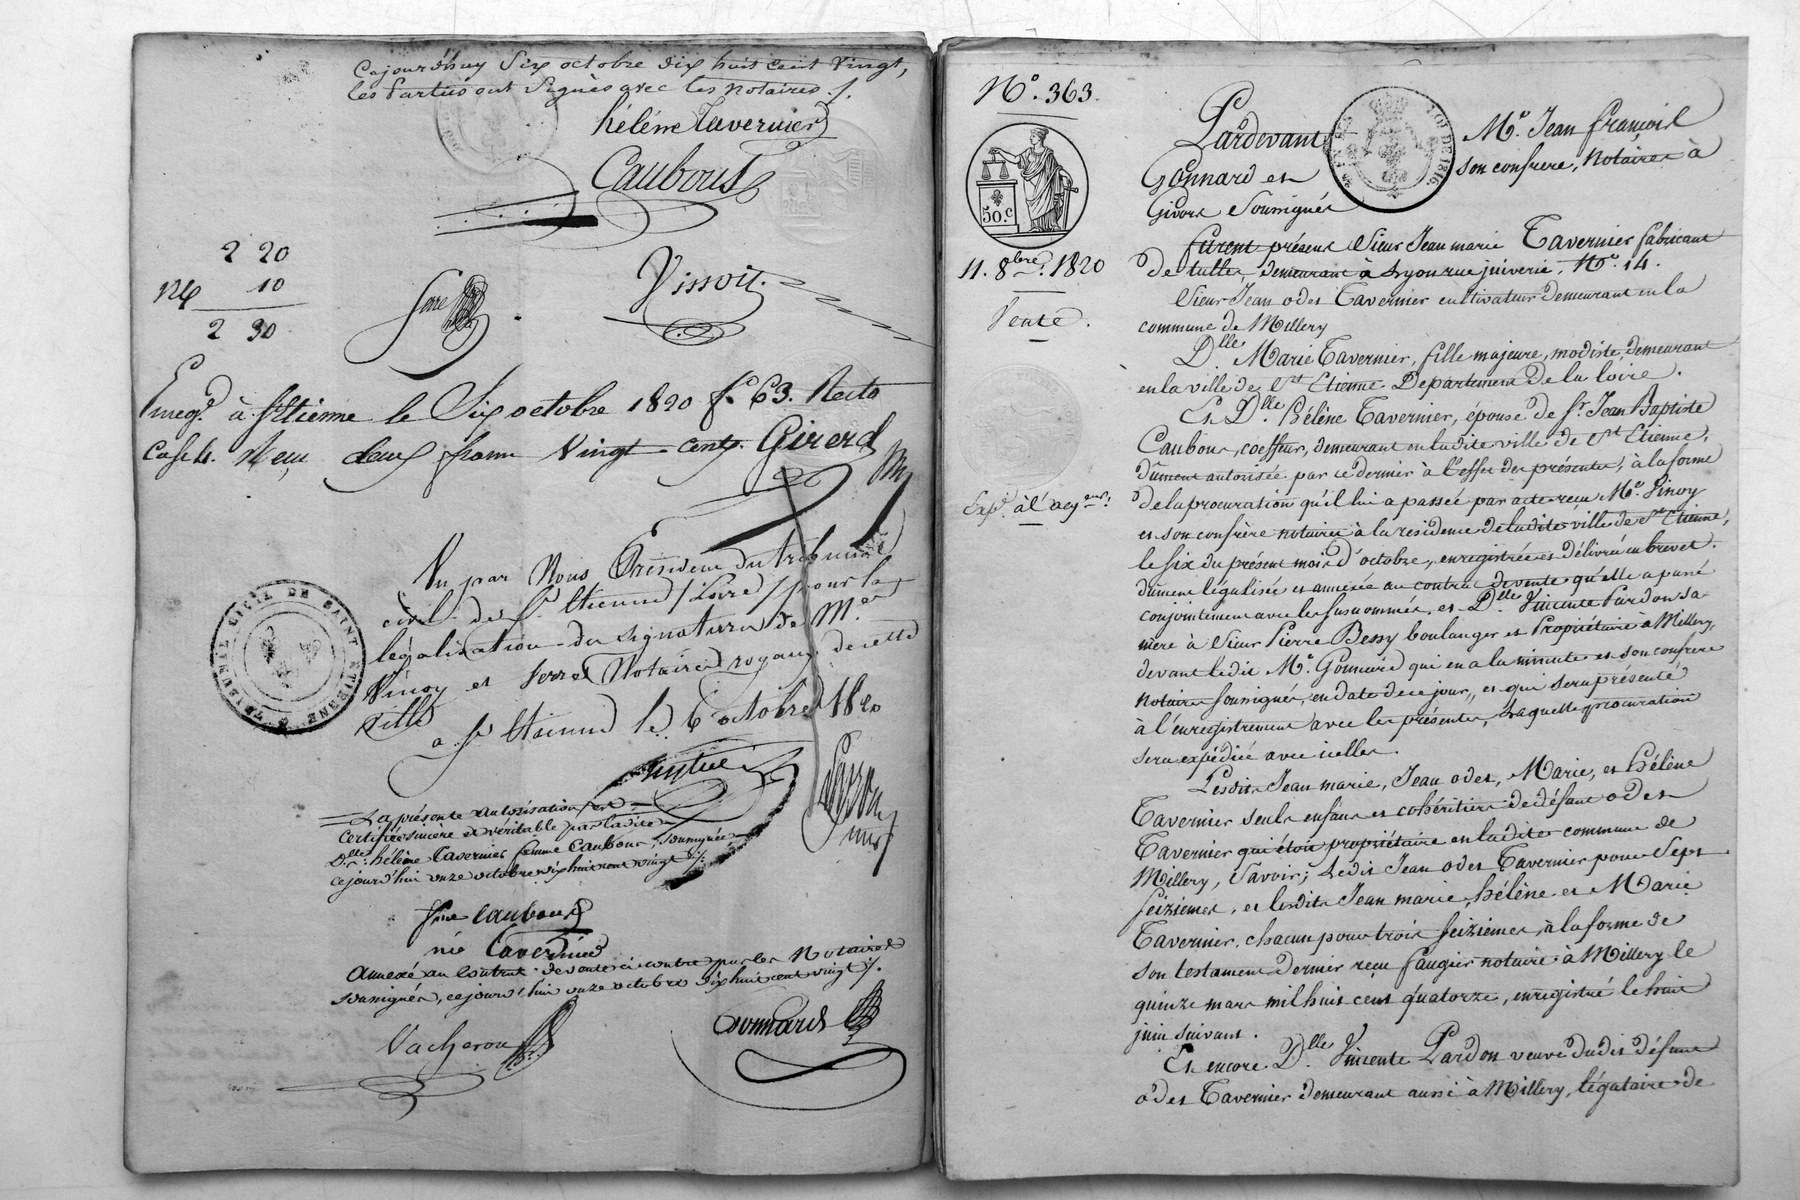 Cejourd'huy Six octobre dix huit cent Vingt,
les Parties ont Signés avec les notaires ./.
hélène Tavernier
Caubous
2 20
10
2 30
Serre
Vissoit.
Enreg.é à St Etienne le Six octobre 1820 f.o 63. Recto
Case 4. Reçu deux francs Vingt cent. Girerd
Vu par Nous Président du tribunal
civil de St. Etienne /Loire/ pour la
légalisation des signatures de M.es
Vinoy et Serre Notaires royaux de cette
Ville
a St Etienne le 6 octobre 1820
TRIBUNAL CIVIL DE SAINT ETIENNE
La présente autorisation est
Certifiée sincère et véritable par ladite
D.lle hélène Tavernier femme Caubous, soussignée,
cejourd'hui onze octobre dix huit cent vingt ./.
fme Caubous
née Tavernier
Annexé au Contrat de vente ci contre par les Notaires
soussignés, cejourd'hui onze octobre dix huit cent vingt ./.
Vacheron
Gonnard
N.o 363.
50.c
11. 8bre. 1820
Vente.
Exp.on à l'acq.eur.
Pardevant M.e Jean françois
Gonnard et son confrere, Notaires à
Givors Soussignés
furent présens Sieur Jean marie Tavernier fabricant
de tulles, demeurant à Lyon rue juiverie, N.o 14.
Sieur Jean odet Tavernier cultivateur demeurant en la
commune de Millery
D.lle Marie Tavernier, fille majeure, modiste, demeurant
en la ville de St Etienne Département de la Loire.
Et D.lle Hélène Tavernier, épouse de Sr. Jean Baptiste
Caubous, coeffeur, demeurant en ladite ville de St Etienne,
dûment autorisée par ce dernier à l'effet des présentes, à la forme
de la procuration qu'il lui a passée par acte reçu M.e Vinoy
et son confrère notaires à la résidence de ladite ville de St Etienne,
le six du présent mois d'octobre, enregistrée et délivrée en brevet.
dûment légalisée et annexée au contrat de vente qu'elle a passé
conjointement avec les susnommés, et D.lle Vincente Pardon sa
mère à Sieur Pierre Bessy boulanger et Propriétaire à Millery,
devant ledit M.e Gonnard qui en a la minute et son confrere
notaires soussignés, en date de ce jour, et qui sera présenté
à l'enregistrement avec les présentes, Laquelle procuration
sera expédiée avec icelles.
Lesdits Jean marie, Jean odet, Marie, et Hélène
Tavernier seuls enfans et cohéritiers de défunt odet
Tavernier qui étoit propriétaire en ladite commune de
Millery, Savoir; Ledit Jean odet Tavernier pour Sept
Seiziemes, et lesdits Jean marie, hélène et Marie
Tavernier, chacun pour trois Seiziemes, à la forme de
son testament dernier reçu faugier notaire à Millery le
quinze mars mil huit cent quatorze, enregistré le huit
juin suivant.
Et encore D.lle Vincente Pardon veuve dudit défunt
odet Tavernier demeurant aussi à Millery, légataire de